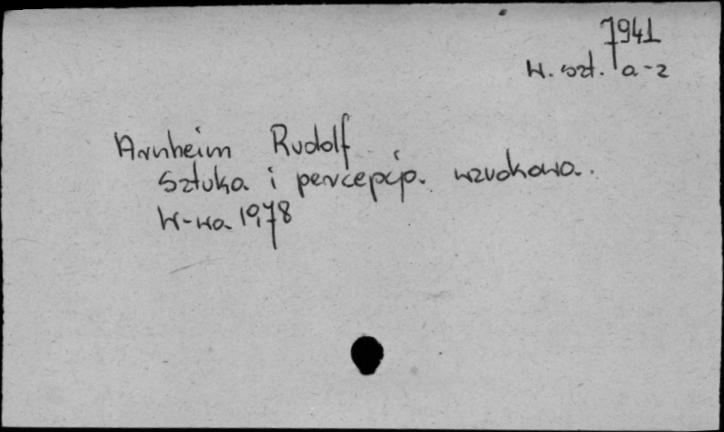 7941
H. szt. a-z
Arnheim Rudolf
Sztuka i percepcja wzrokowa.
W-wa 1978